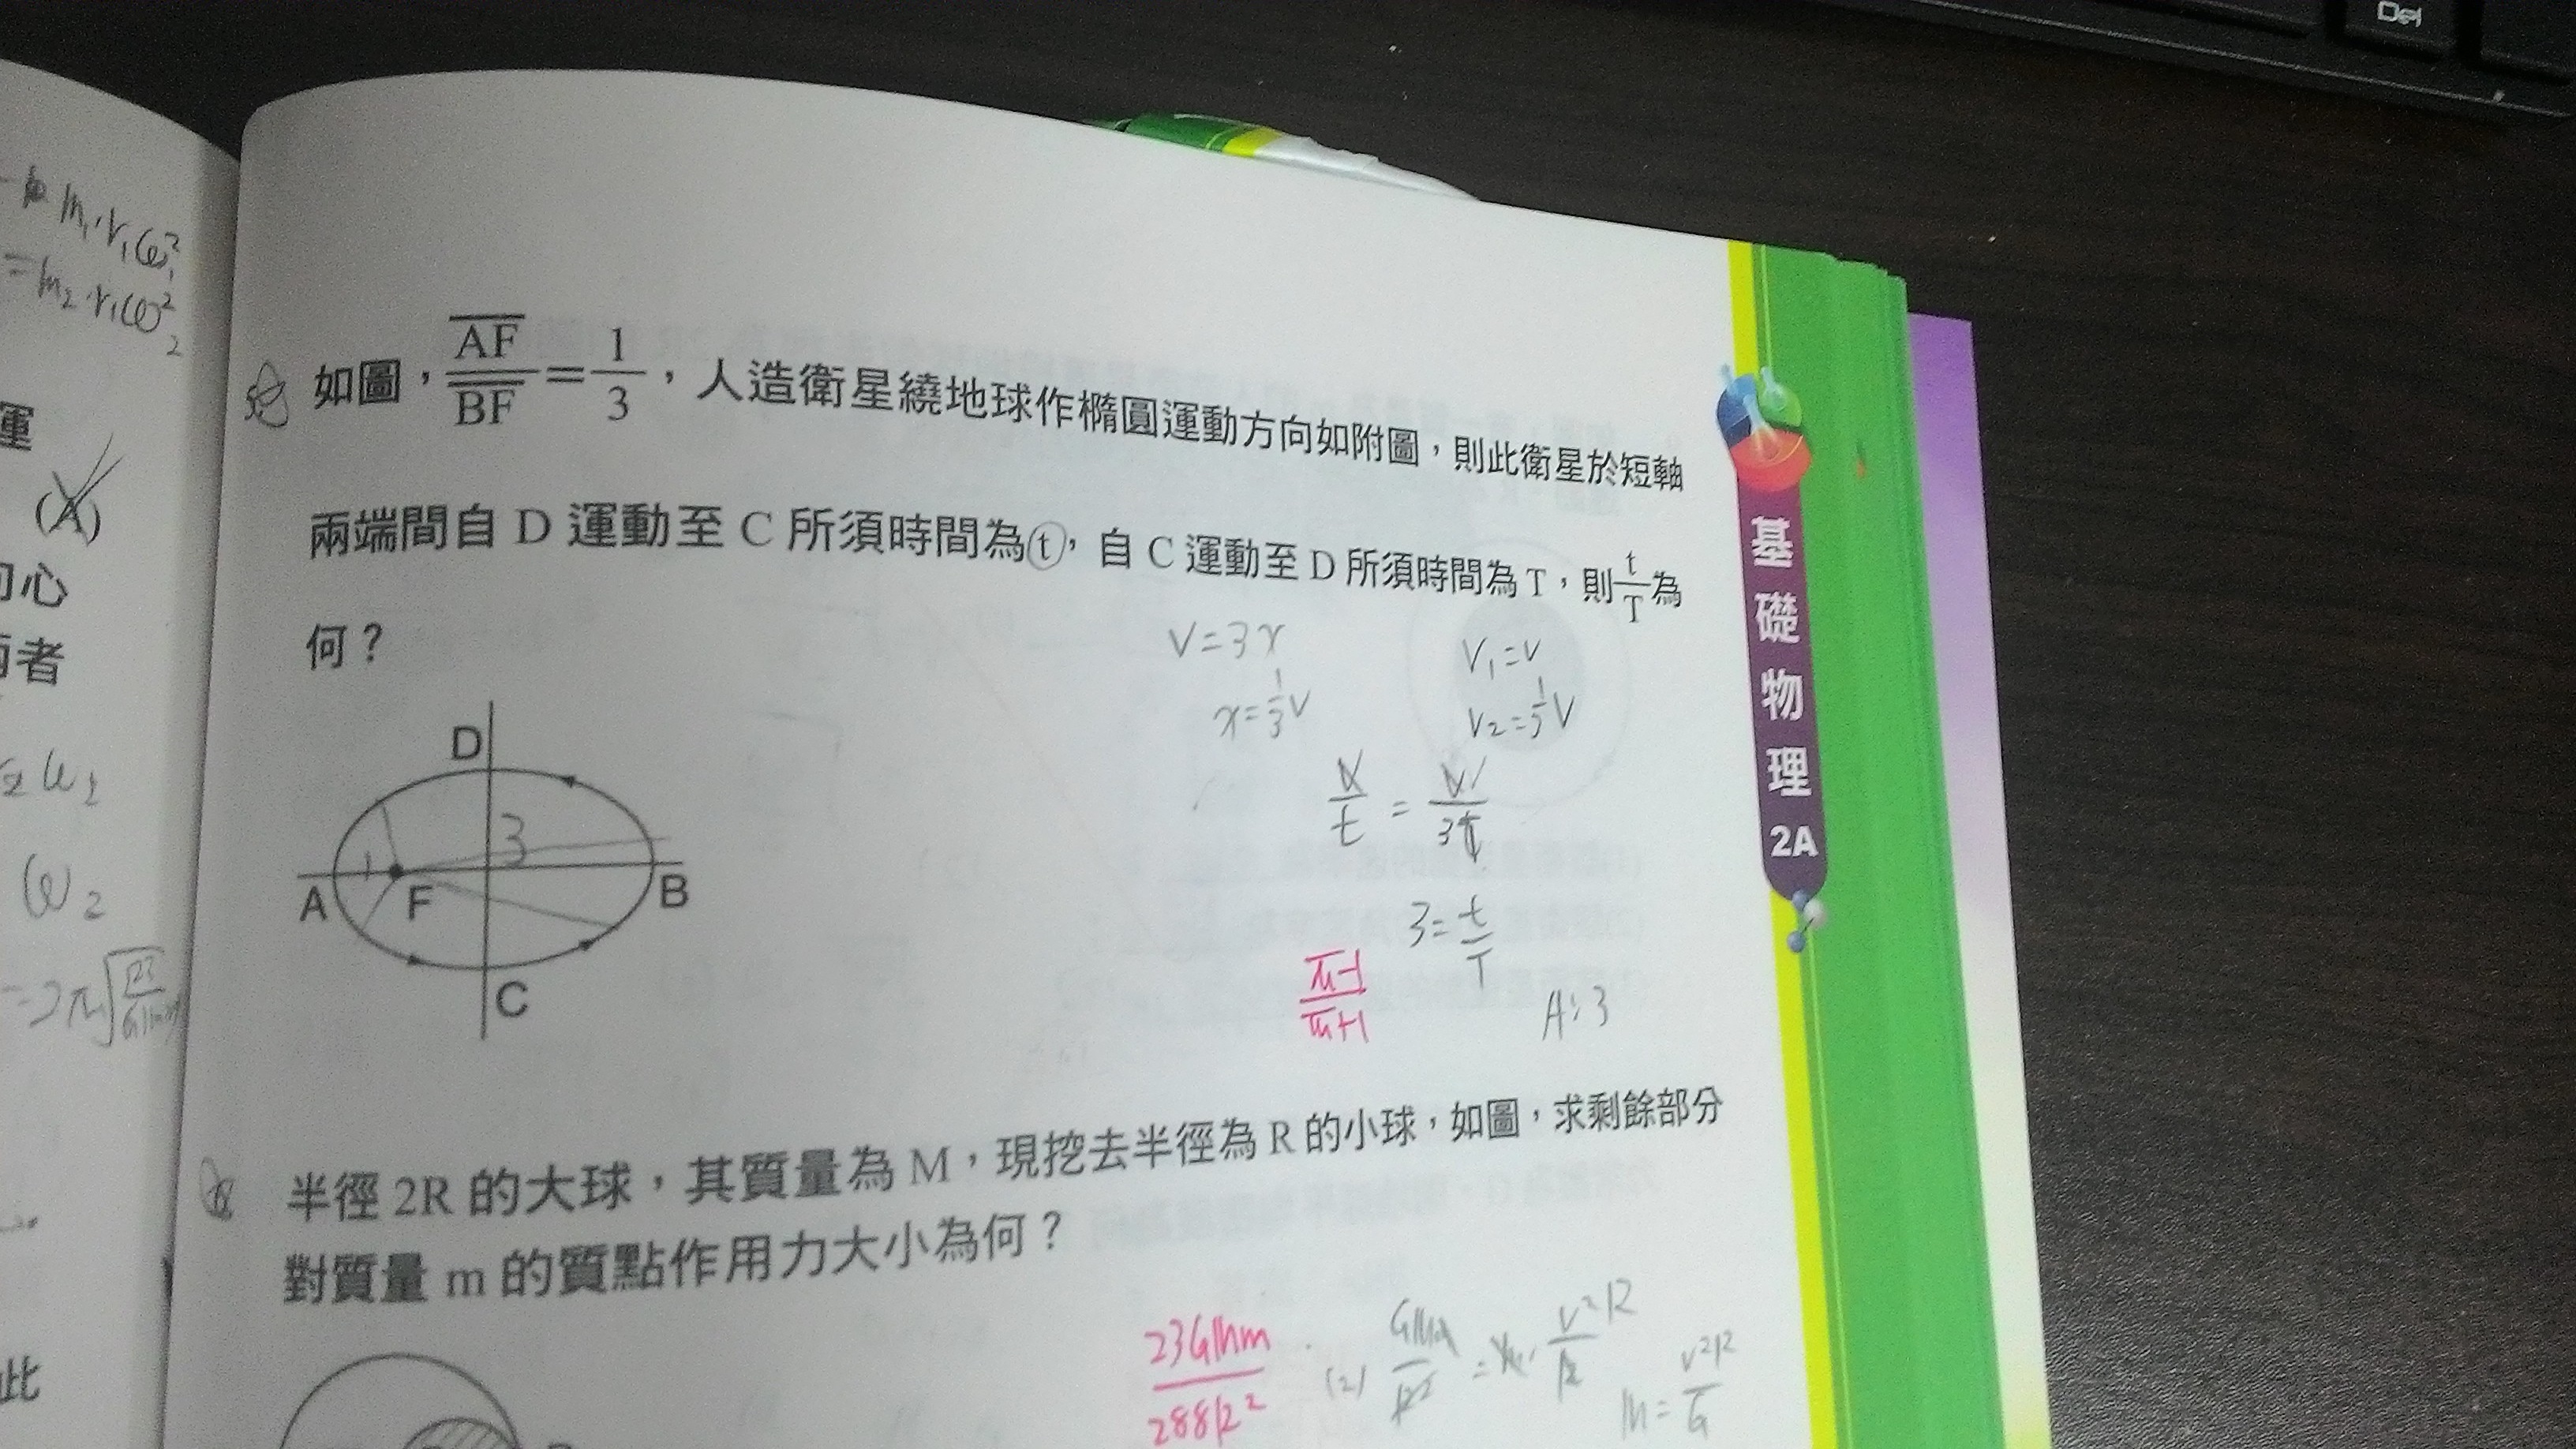 Del
m₁·r₁ω₁²
=m₂·r₁ω₂²
運
(A)
心
者
ω₂
此
如圖，AF/BF=1/3，人造衛星繞地球作橢圓運動方向如附圖，則此衛星於短軸
兩端間自 D 運動至 C 所須時間為t，自 C 運動至 D 所須時間為 T，則t/T為
何？
V=3x
x=1/3V
V₁=V
V₂=1/3V
3=t/T
A:3
π-1/π+1
D
3
1
A
F
B
C
半徑 2R 的大球，其質量為 M，現挖去半徑為 R 的小球，如圖，求剩餘部分
對質量 m 的質點作用力大小為何？
23GMm/288R²
(2)
M=V²R/G
基礎物理
2A